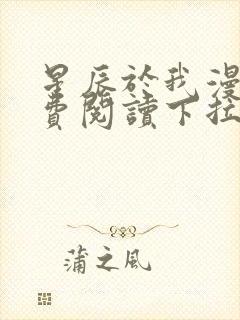 星辰於我漫
費閱讀下拉
蒲之风